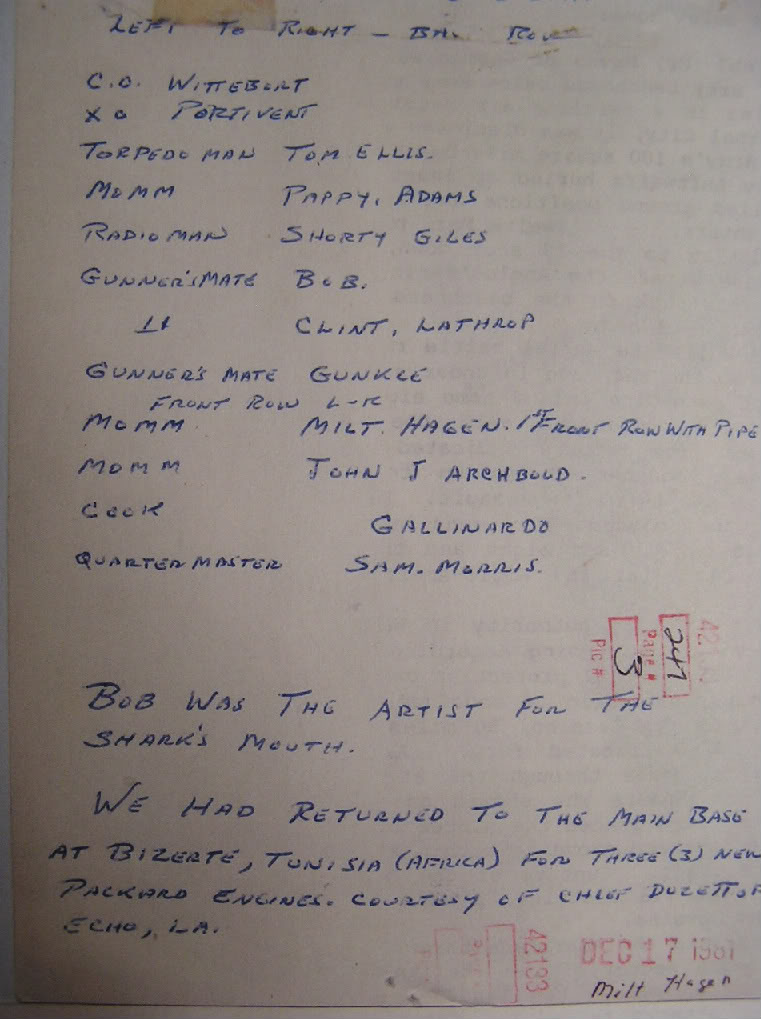 LEFT TO RIGHT — BA. ROW
C.O. WITTEBORT
XO PORTIVENT
TORPEDO MAN TOM ELLIS.
MOMM PAPPY, ADAMS
RADIO MAN SHORTY GILES
GUNNER'S MATE BOB.
CLINT, LATHROP
GUNNER'S MATE GUNKLE
FRONT ROW L-R
MOMM MILT. HAGEN. 1ST FRONT ROW WITH PIPE
MOMM JOHN J ARCHBOLD.
COOK GALLINARDO
QUARTERMASTER SAM. MORRIS.
42133
Page # 247
Pic # 3
BOB WAS THE ARTIST FOR THE
SHARK'S MOUTH.
WE HAD RETURNED TO THE MAIN BASE
AT BIZERTE, TUNISIA (AFRICA) FOR THREE (3) NEW
PACKARD ENGINES. COURTESY OF CHIEF DUZETT OF
ECHO, LA.
42133
DEC 17 1981
Milt Hagen